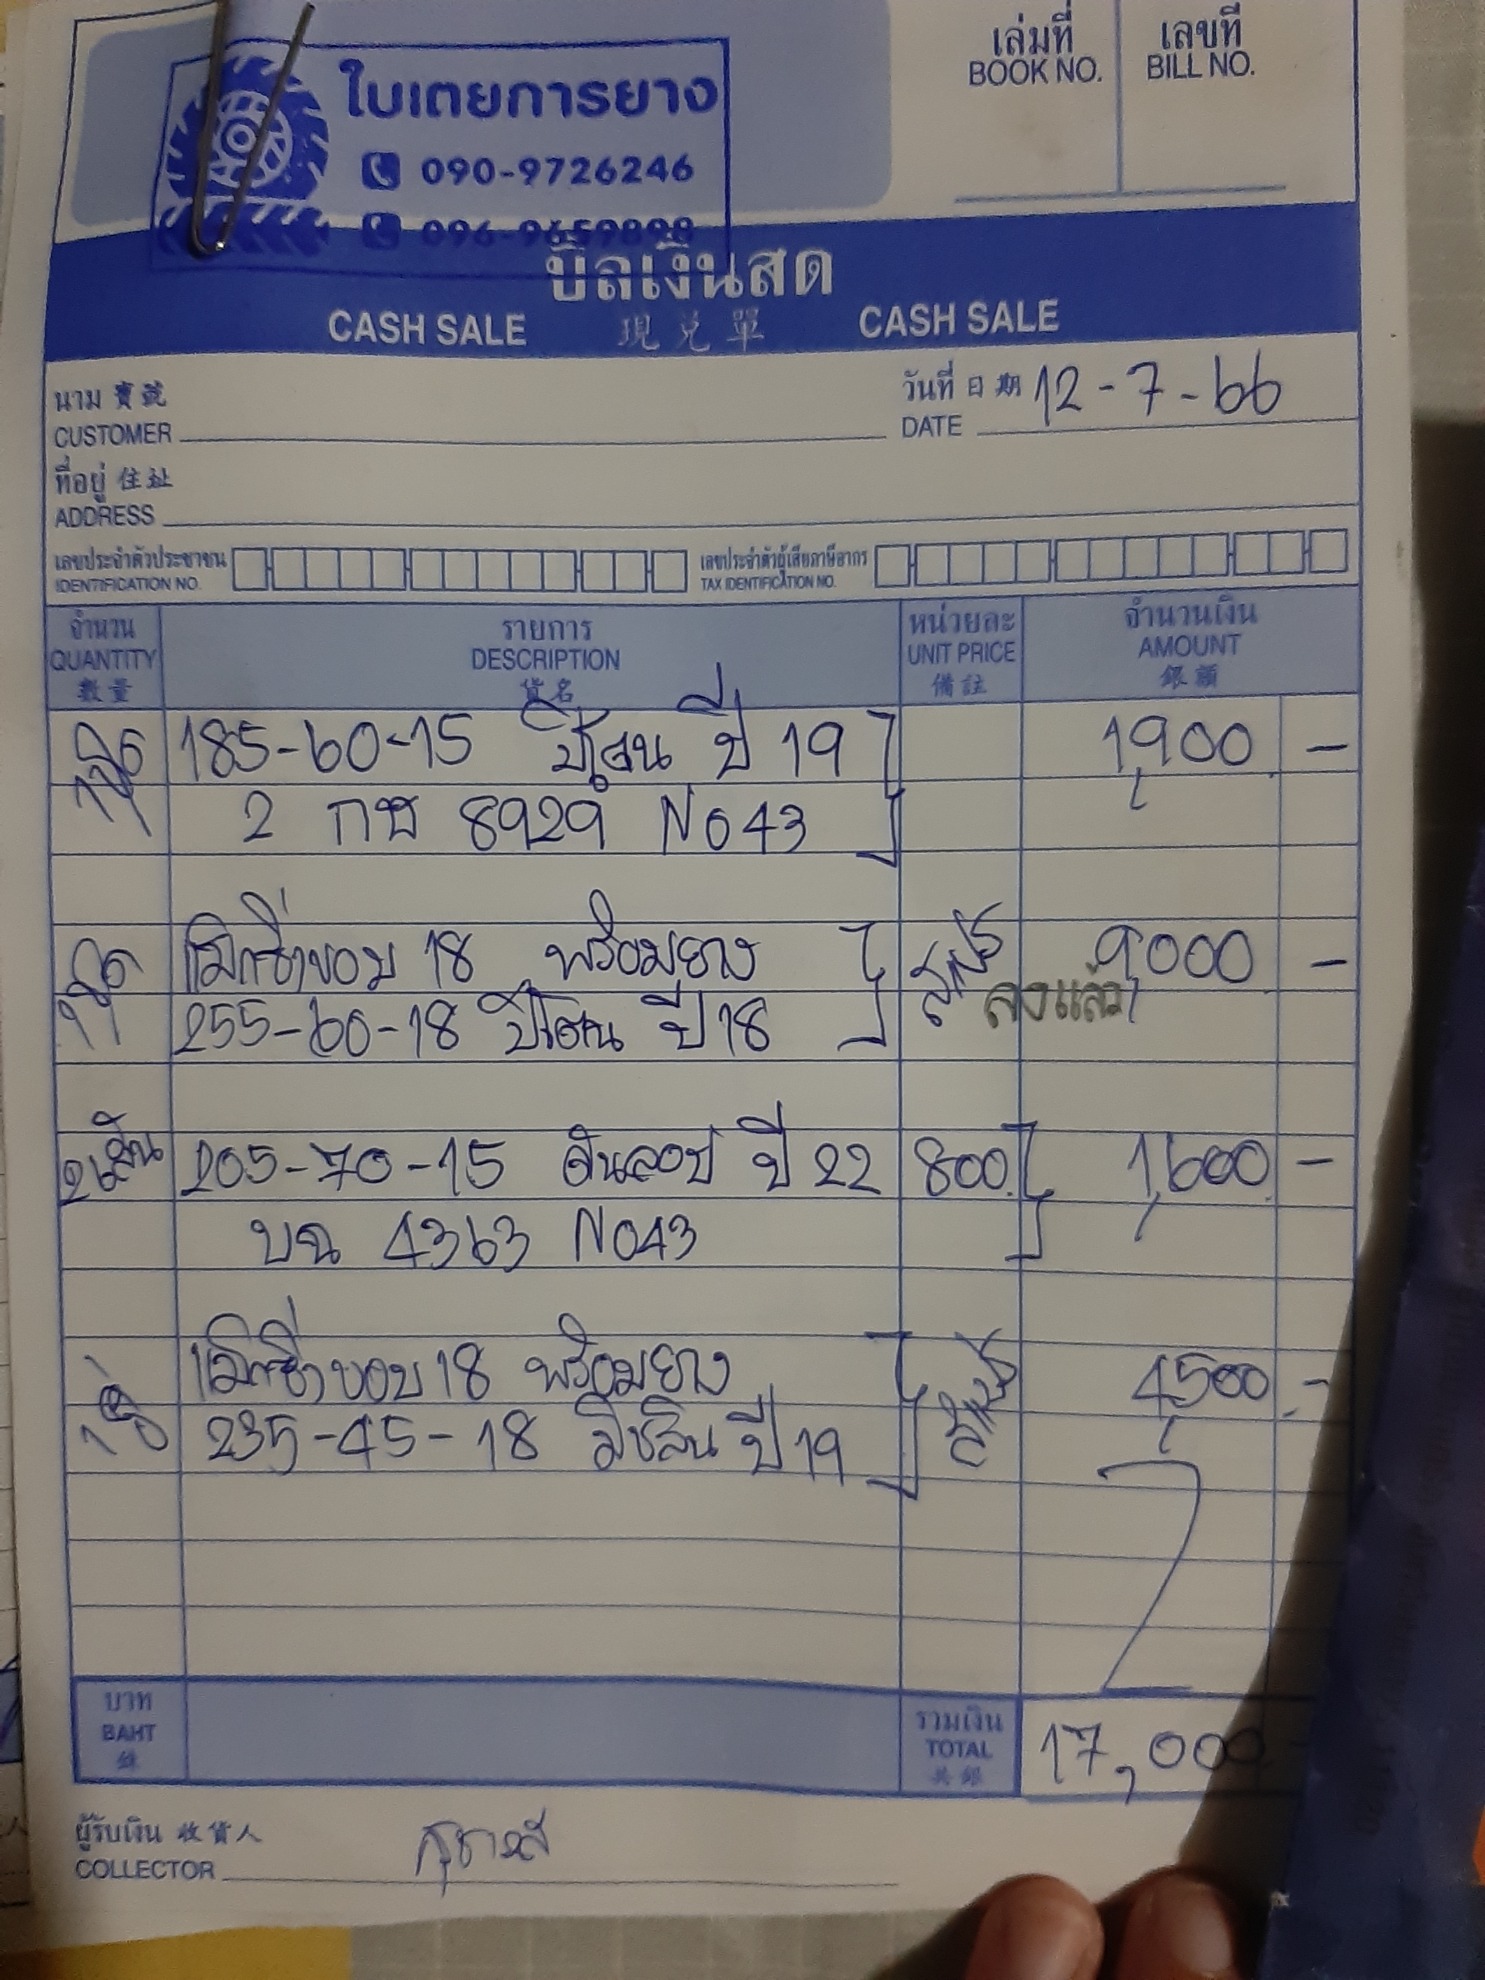 ใบเตยการยาง
090-9726246
096-9659898
เล่มที่ เลขที่
BOOK NO. BILL NO.
บิลเงินสด
CASH SALE 現兌單 CASH SALE
นาม 寶號 วันที่ 日期 12-7-66
CUSTOMER DATE
ที่อยู่ 住址
ADDRESS
เลขประจำตัวประชาชน เลขประจำตัวผู้เสียภาษีอากร
IDENTIFICATION NO. TAX IDENTIFICATION NO.
จำนวน รายการ หน่วยละ จำนวนเงิน
QUANTITY DESCRIPTION UNIT PRICE AMOUNT
數量 貨名 備註 銀額
1 ชุด 185-60-15 ปี 19 1,900 -
2 กช 8929 NO43
1 ชุด แม็กซิ่งขอบ 18 พร้อมยาง 9,000 -
255-60-18 ปี 18 ลงแล้ว
2 เส้น 205-70-15 ดันลอป ปี 22 800. 1,600 -
บฉ 4363 NO43
แม็กซิ่งขอบ 18 พร้อมยาง 4,500 -
235-45-18 มิชลิน ปี 19
บาท รวมเงิน
BAHT TOTAL 17,000
共銀
ผู้รับเงิน 收貨人
COLLECTOR